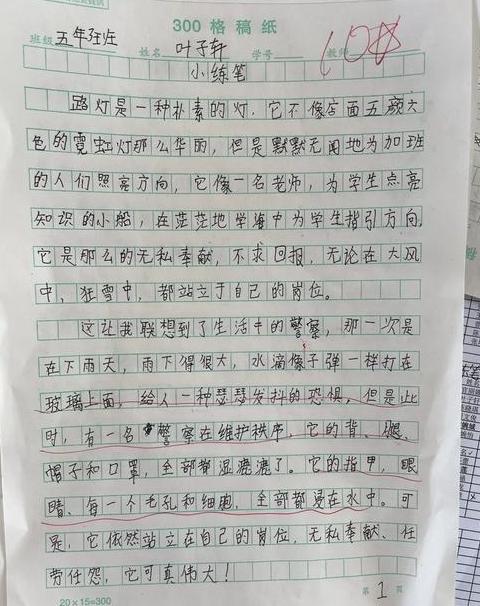 300 格稿纸
班级 五年3班 姓名 叶子轩 学号 教师
10
小练笔
路灯是一种朴素的灯，它不像店面五颜六
色的霓虹灯那么华丽，但是默默无闻地为加班
的人们照亮方向，它像一名老师，为学生点亮
知识的小船，在茫茫地学海中为学生指引方向，
它是那么的无私奉献，不求回报，无论在大风
中、狂雪中，都站立于自己的岗位。
这让我联想到了生活中的警察，那一次是
在下雨天，雨下得很大，水滴像子弹一样打在
玻璃上面，给人一种瑟瑟发抖的恐惧，但是此
时，有一名警察在维护秩序，它的背、腿、
帽子和口罩，全部都湿漉漉了。它的指甲，眼
睛、每一个毛孔和细胞，全部都浸在水中。可
是，它依然站立在自己的岗位，无私奉献、任
劳任怨，它可真伟大！
20×15=300 第 1 页